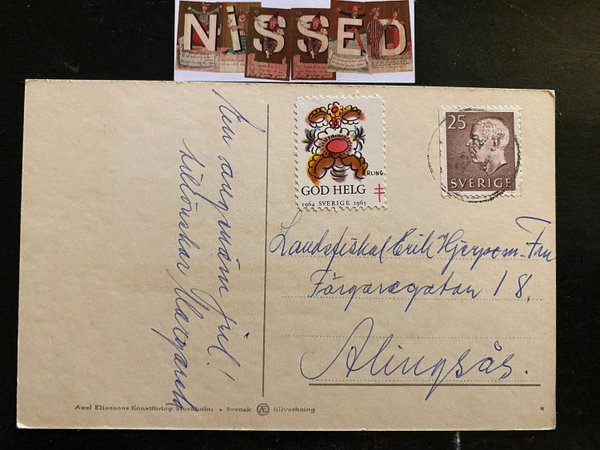 NISSED
En angenäm jul!
tillönskar Margareta
ERLING
GOD HELG
1964 SVERIGE 1965
25
SVERIGE
Landsfiskal Erik Hjerpem. Fru
Färgaregatan 18.
Alingsås.
Axel Eliassons Konstförlag Stockholm • Svensk Æ tillverkning